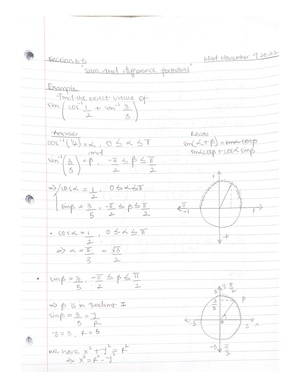 Section 6.5
Wed November 9 2022
"Sum and difference formulas"
Example
Find the exact value of
sin( cos⁻¹ 1/2 + sin⁻¹ 3/5 )
Answer
Recall
cos⁻¹(1/2) = α, 0 ≤ α ≤ π
sin(α+β) = sinα cosβ +
and
sinα cosβ + cosα sinβ
sin⁻¹(3/5) = β, -π/2 ≤ β ≤ π/2
⇒ { cosα = 1/2, 0 ≤ α ≤ π
sinβ = 3/5, -π/2 ≤ β ≤ π/2
• cosα = 1/2, 0 ≤ α ≤ π
⇒ α = π/3 = √3/2
• sinβ = 3/5, -π/2 ≤ β ≤ π/2
⇒ β is in Quadrant I
sinβ = 3/5 = y/R
y = 3, R = 5
we have x² + y² = R²
⇒ x² = R² - y²